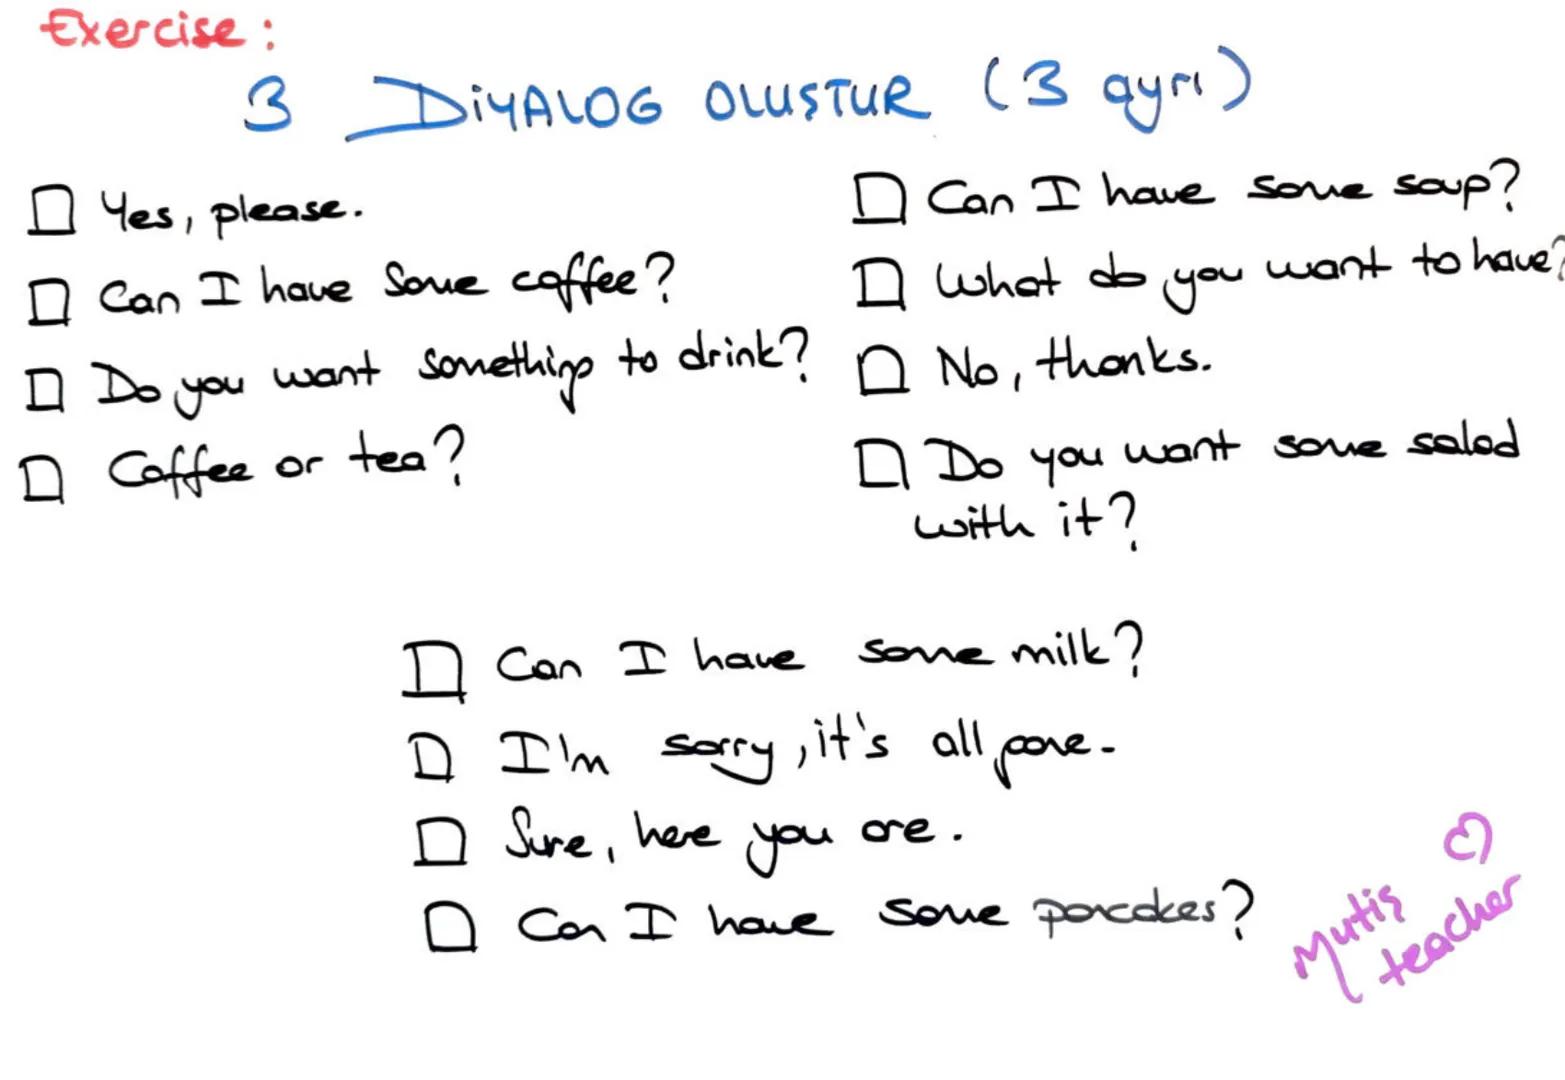 Exercise:
3 DİYALOG OLUŞTUR (3 ayrı)
Yes, please.
Can I have some coffee?
Do you want something to drink?
Coffee or tea?
Can I have some soup?
What do you want to have?
No, thanks.
Do you want some salad
with it?
Can I have some milk?
I'm sorry, it's all gone.
Sure, here you are.
Can I have some pancakes?
Mutiş
teacher